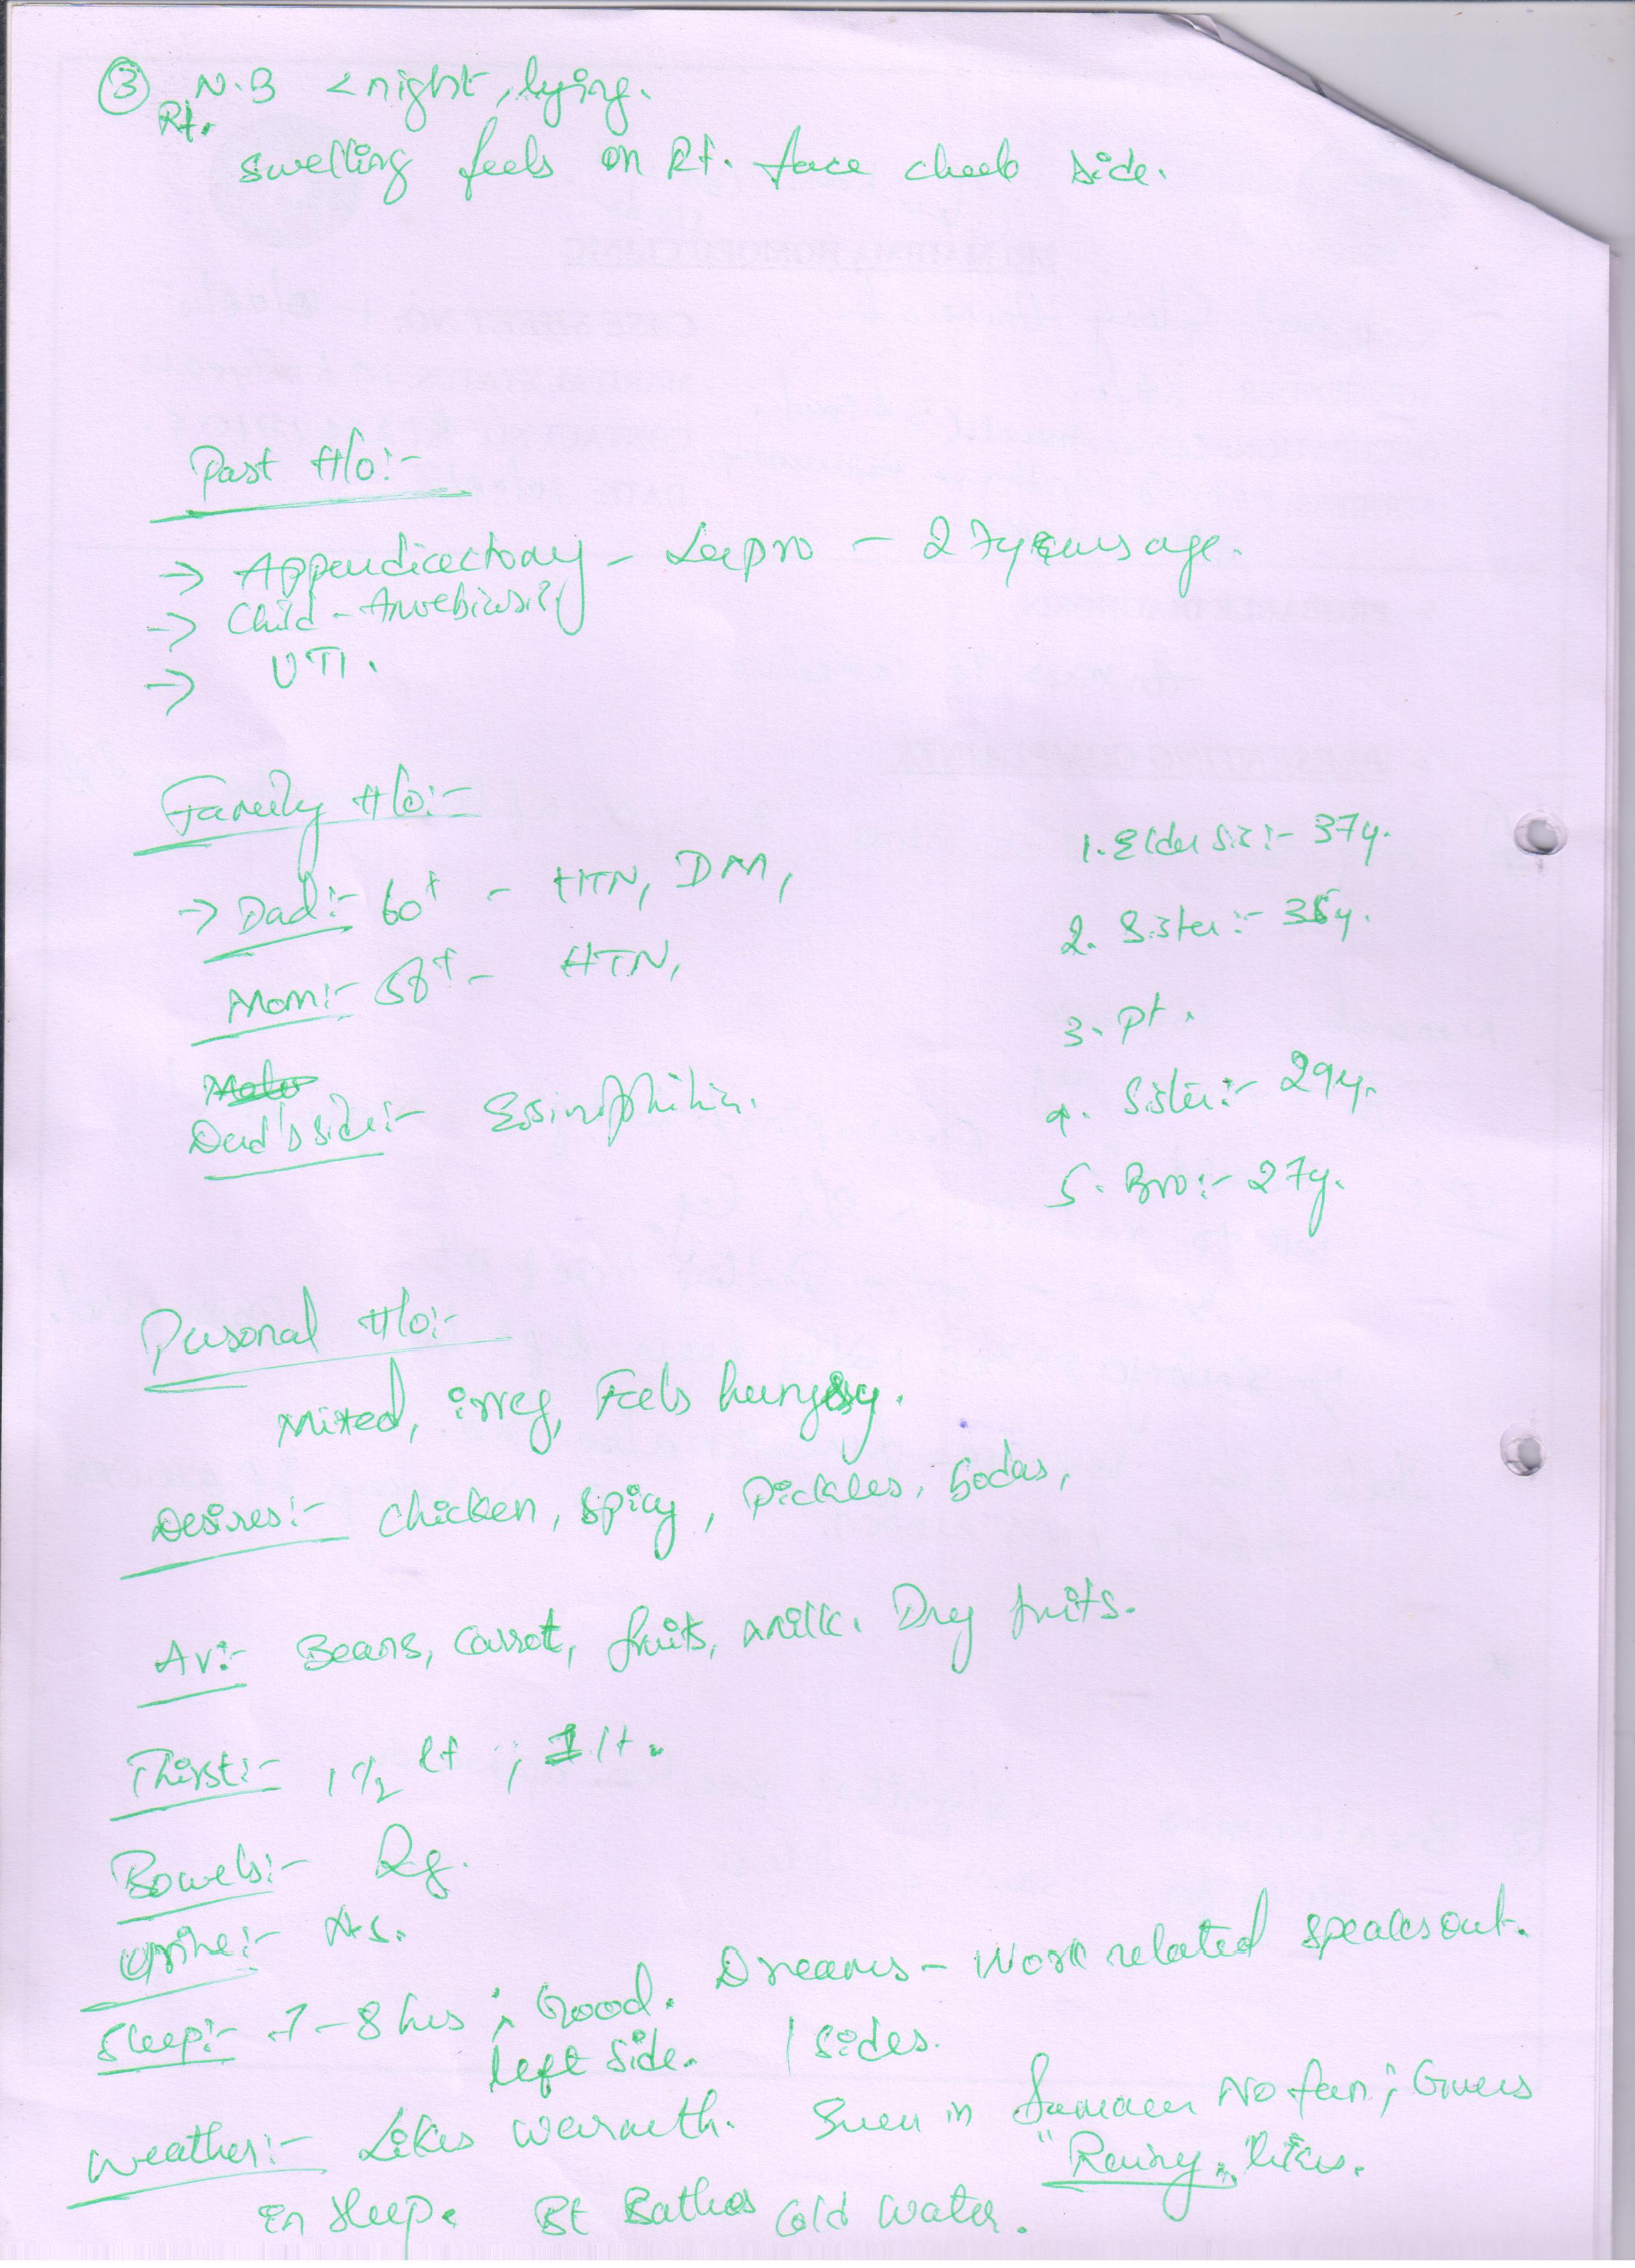 ③ N.B < night, lying.
Rt.
swelling feels on Rt. face cheek side.
Past H/o:-
→ Appendicectomy - Lapro - 27 years age.
→ Child - Amoebiasis
→ UTI.
Family H/o:-
→ Dad:- 60+ - HTN, DM,
Mom:- 58+ - HTN,
Dad's side:- Esinophilia.
1. Elder sis:- 37y.
2. Sister:- 35y.
3. Pt.
4. Sister:- 29y.
5. Bro:- 27y.
Personal H/o:-
Mixed, irreg, Feels hungry.
Desires:- Chicken, Spicy, Pickles, Sodas,
Av:- Beans, Carrot, fruits, milk. Dry fruits.
Thirst:- 1 1/2 lt ; 1 lt.
Bowels:- Rg.
Urine:- N.S.
Sleep:- 7-8 hrs ; Good. Dreams - Work related speaks out.
left side. / sides.
Weather:- Likes warmth. Even in summer No fan ; Covers
"Rainy" likes.
in sleep. Bt Bathes Cold water.